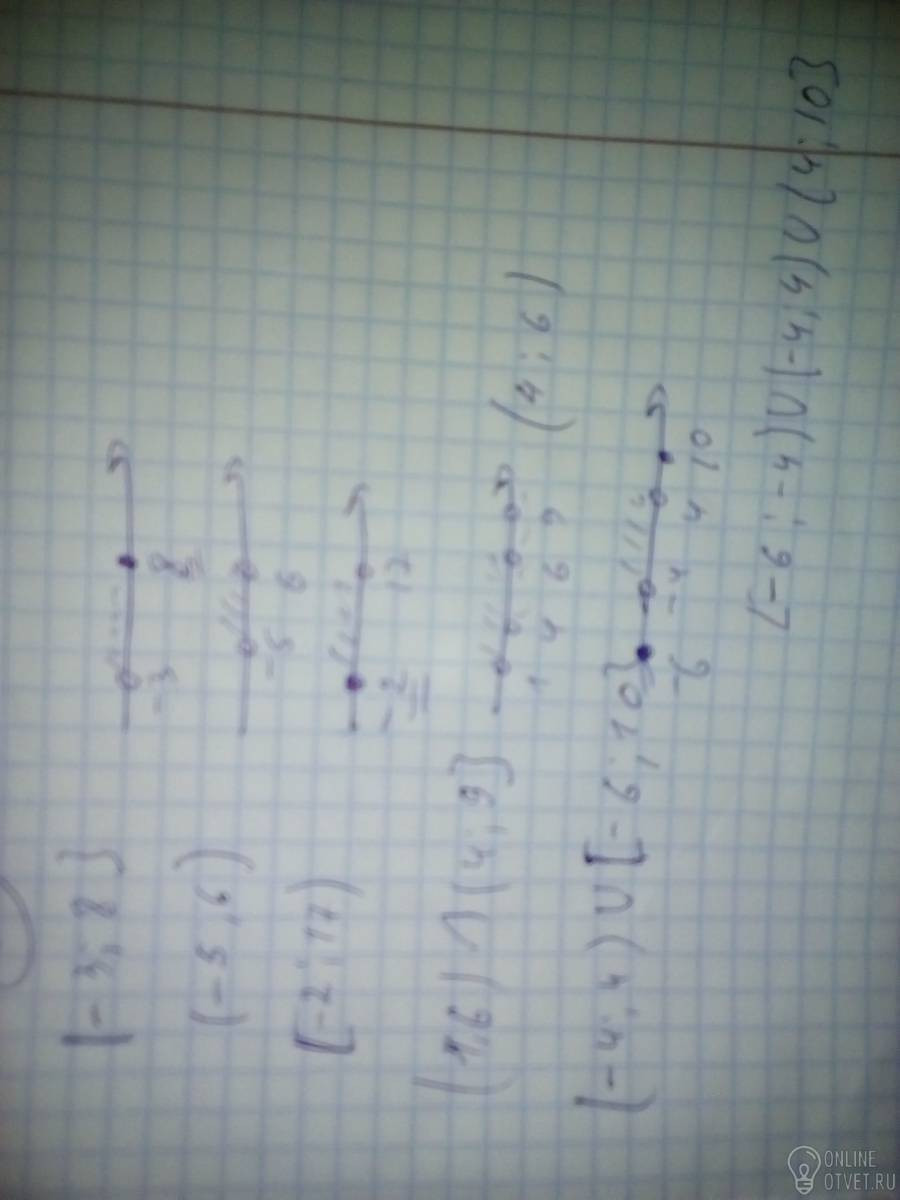 (-3; 8]
-3 8
(-5, 6)
-5 6
[-2; 17)
-2 17
(1, 6) ∩ (4; 9]
1 4 6 9
(4; 6)
(-4; 4) ∪ [-6; 10]
-6 -4 4 10
[-6; -4) ∪ (-4; 4) ∪ (4; 10]
ONLINE
OTVET.RU